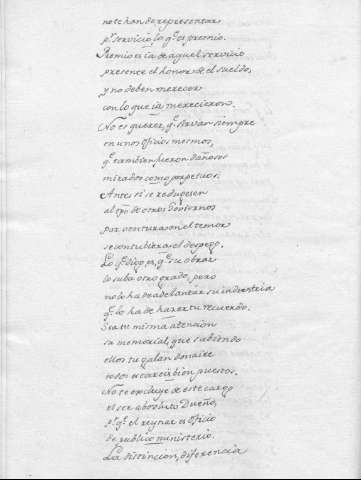 no te han de representar
pr. servicio, lo q. es premio.
Premio es ia de aquel servicio
presente el honor, de el sueldo,
y no deben merecer
con lo que ia merecieron.
No es querer, q. sirvan siempre
en unos oficios mesmos,
q. tambien fueron dañosos
mirados como perpetuos.
Antes si se reduxesen
al de otros Goviernos
por ventura en el temor
se contubiera el despego.
Lo q. digo es, q. su obrar
lo suba otro grado, pero
no lo ha de adelantar su industria
q. lo ha de hazer tu recuerdo.
Sea tu misma atencion
su memorial, que sabiendo
ellos tu galan donaire
todos estaràn bien puestos.
No se excluye de este cargo
el ser absoluto Dueño,
pr. q. el reynar es oficio
de publico ministerio.
La distincion, diferencia